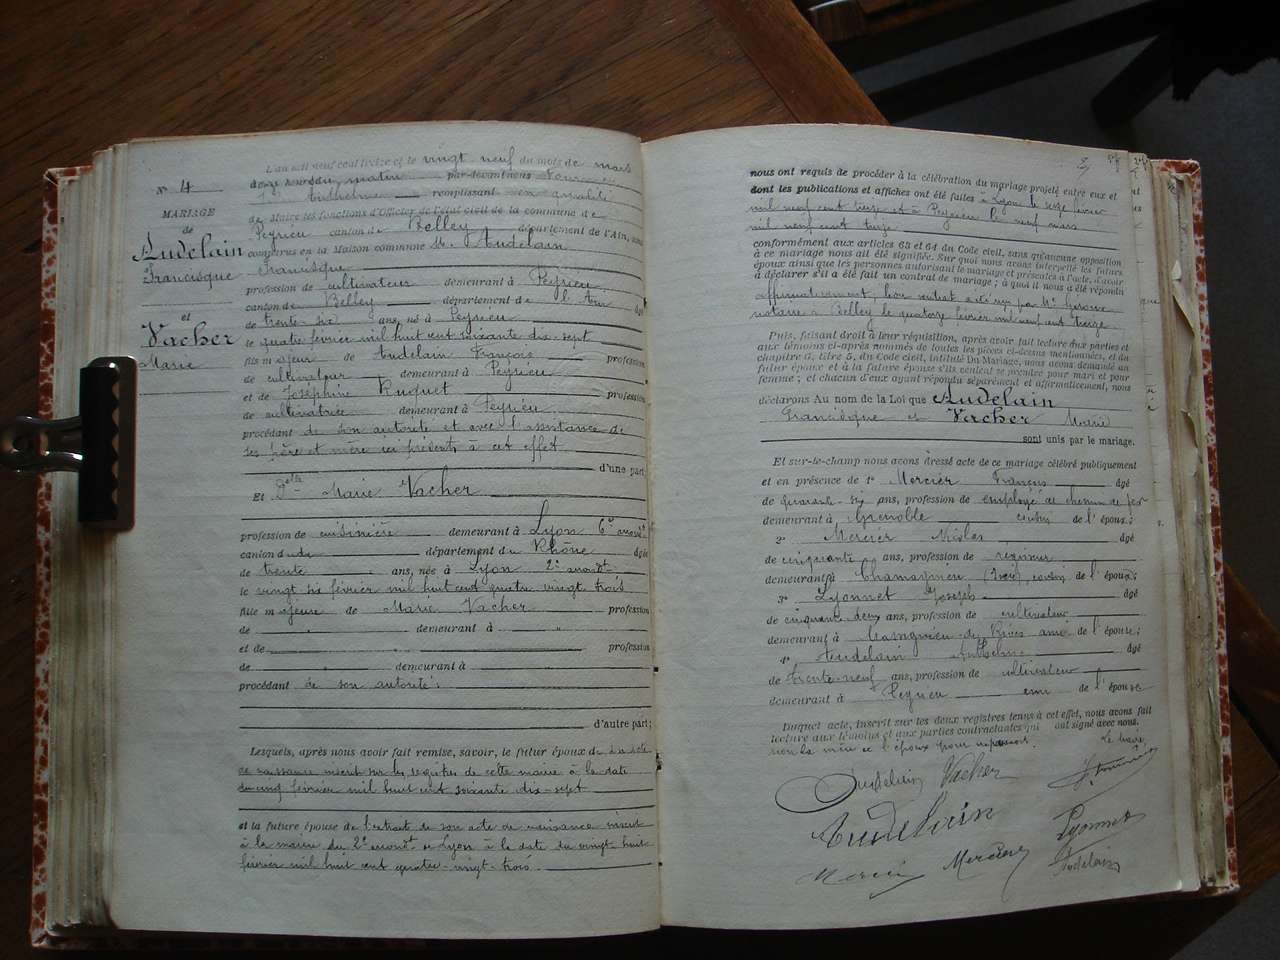 N° 4
MARIAGE
de
Audelain
Francisque
et
Vacher
Marie
L'an mil neuf cent treize et le vingt neuf du mois de mars
heures du matin par-devant nous
Anthelme remplissant en qualité
de Maire les fonctions d'Officier de l'état civil de la commune de
Peyrieu canton de Belley département de l'Ain, sont
comparus en la Maison commune M. Audelain
Francisque
profession de cultivateur demeurant à Peyrieu
canton de Belley département de l'Ain âgé
de trente-six ans, né à Peyrieu
le quatre février mil huit cent soixante dix-sept
fils majeur de Audelain François profession
de cultivateur demeurant à Peyrieu
et de Joséphine Ruguet profession
de cultivatrice demeurant à Peyrieu
procédant de son autorité et avec l'assistance de
ses père et mère ici présents à cet effet
d'une part;
Et Delle Marie Vacher
profession de cuisinière demeurant à Lyon 6e arrondt
canton du département du Rhône âgée
de trente ans, née à Lyon 2e arrondt
le vingt six février mil huit cent quatre vingt trois
fille majeure de Marie Vacher profession
de demeurant à
et de profession
de demeurant à
procédant de son autorité.
d'autre part;
Lesquels, après nous avoir fait remise, savoir, le futur époux de l'acte
de naissance inscrit sur les registres de cette mairie à la date
du cinq février mil huit cent soixante dix-sept
et la future épouse de l'extrait de son acte de naissance inscrit
à la mairie du 2e arrondt de Lyon à la date du vingt-huit
février mil huit cent quatre-vingt-trois.
nous ont requis de procéder à la célébration du mariage projeté entre eux et
dont les publications et affiches ont été faites à Lyon le seize février
mil neuf cent treize et à Peyrieu le neuf mars
mil neuf cent treize
conformément aux articles 63 et 64 du Code civil, sans qu'aucune opposition
à ce mariage nous ait été signifiée. Sur quoi nous avons interpellé les futurs
époux ainsi que les personnes autorisant le mariage et présentes à l'acte, d'avoir
à déclarer s'il a été fait un contrat de mariage; à quoi il nous a été répondu
affirmativement, leur contrat a été reçu par Me
notaire à Belley le quatorze février mil neuf cent treize
Puis, faisant droit à leur réquisition, après avoir fait lecture aux parties et
aux témoins ci-après nommés de toutes les pièces ci-dessus mentionnées, et du
chapitre 6, titre 5, du Code civil, intitulé Du Mariage, nous avons demandé au
futur époux et à la future épouse s'ils veulent se prendre pour mari et pour
femme; et chacun d'eux ayant répondu séparément et affirmativement, nous
déclarons Au nom de la Loi que Audelain
Francisque et Vacher Marie
sont unis par le mariage.
Et sur-le-champ nous avons dressé acte de ce mariage célébré publiquement
et en présence de 1° Mercier François âgé
de quarante-six ans, profession de employé de chemin de fer
demeurant à Grenoble cousin de l'épouse;
2° Mercier Nicolas âgé
de cinquante ans, profession de régisseur
demeurant à Chamagnieu (Isère) cousin de l'épouse;
3° Lyonnet Joseph âgé
de cinquante deux ans, profession de cultivateur
demeurant à Massignieu-de-Rives ami de l'épouse;
4° Audelain Anthelme âgé
de trente-neuf ans, profession de cultivateur
demeurant à Peyrieu de l'épouse
Duquel acte, inscrit sur les deux registres tenus à cet effet, nous avons fait
lecture aux témoins et aux parties contractantes qui ont signé avec nous.
non la mère de l'époux pour
Le Maire
Audelain Vacher
Audelain
Lyonnet
Mercier Mercier
Audelain